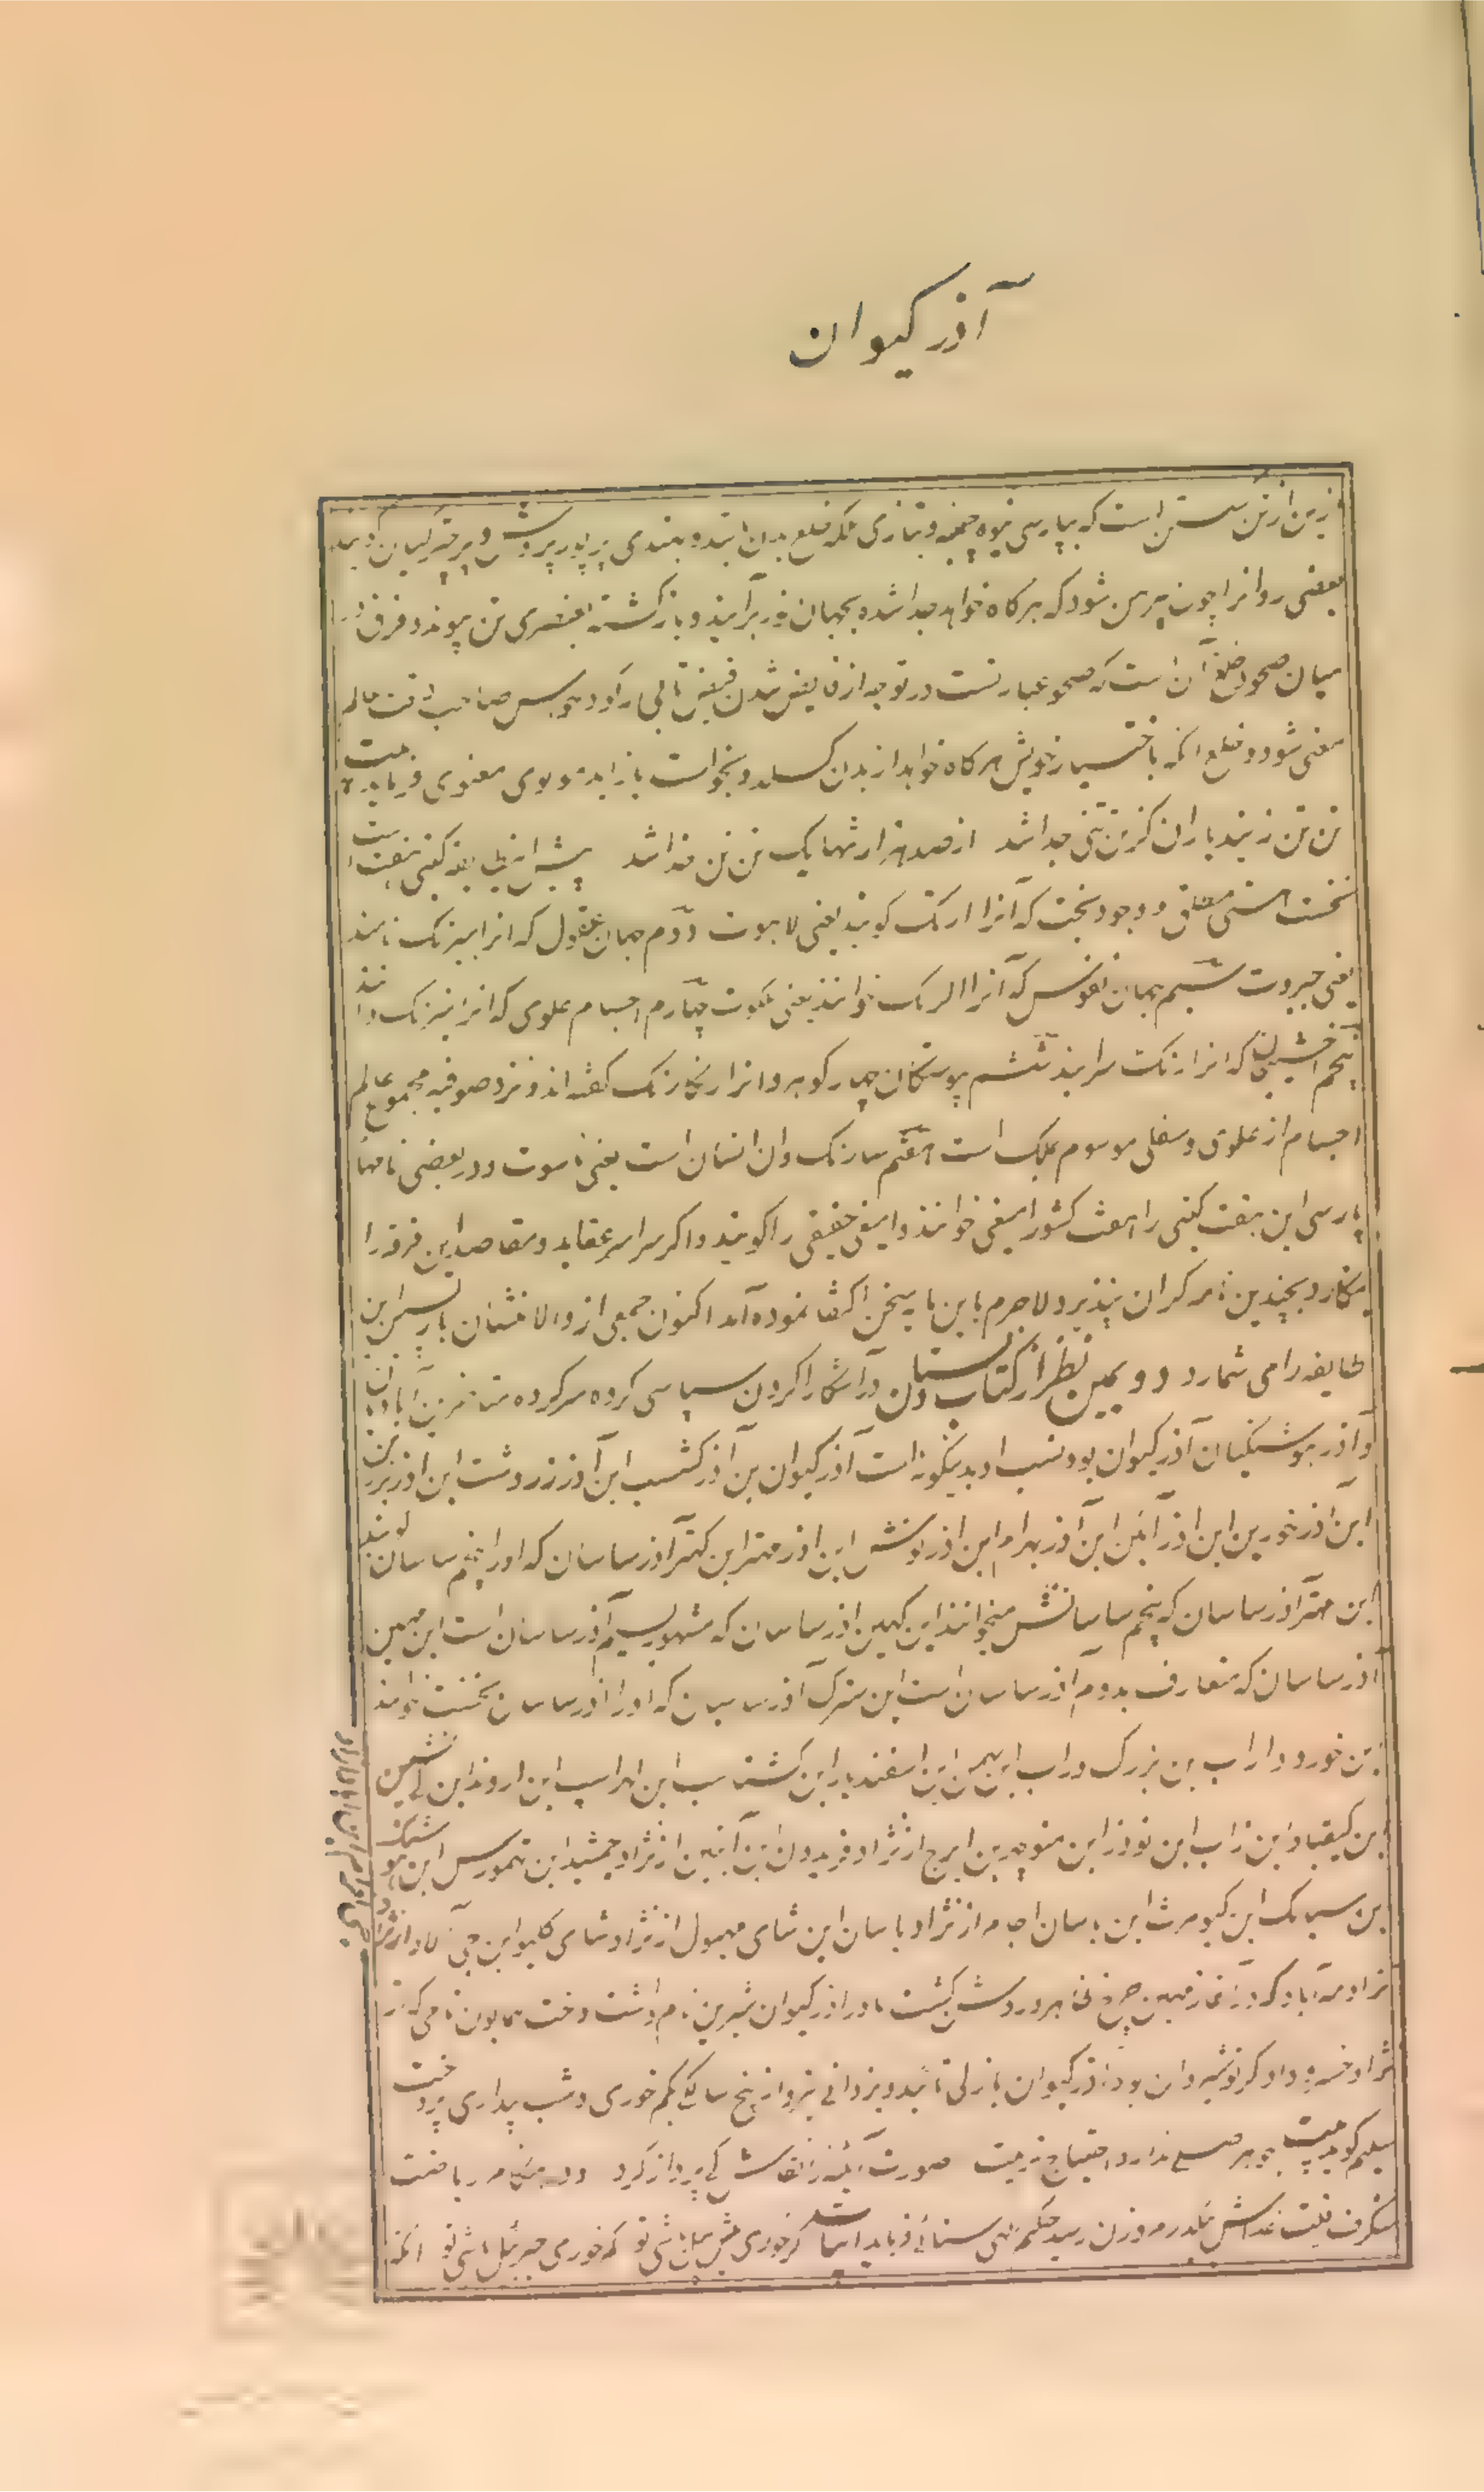 آذر کیوان
ازین از تن رستن است که بپارسی نیوه چمینه و بتازی ملکه خلع بدن نامند و بهندی
یعنی روانرا چون پیرهن شود که هرگاه خواهد جدا شده بجهان نور برآید و بازگشته بعنصری تن پیوندد و فرق در
میان صحو و خلع آن است که صحو عبارتست در توجه از فایض شدن فیض تا صاحب عالم
معنی شود و خلع آنکه باختیار خویش هرگاه خواهد از بدن گسلد و بخواست باز آید مولوی معنوی فرماید بیت
تن تن زنید یاران کز تن تنی جدا شد از صدهزار تنها یک تن تن خدا شد پیش این طایفه گیتی هفت است
نخست هستی مطلق و وجود بحت که آنرا ارنگ گویند یعنی لاهوت دوم جهان عقول که انرا بیرنگ نامند
یعنی جبروت سیم جهان نفوس که آنرا الرنگ خوانند یعنی ملکوت چهارم اجسام علوی که انرا نیرنگ دانند
پنجم آخشیجان که انرا رنگ سرایند ششم پیوستگان چهار گوهر و انرا رنگارنگ گفته اند و نزد صوفیه مجموع عالم
اجسام از علوی و سفلی موسوم بملک است هفتم سارنگ و ان انسان است یعنی ناسوت و در بعضی نامهای
پارسی این هفت گیتی را هفت کشور ایمغی خوانند و ایمغی حقیقی را گویند و اگر سراسر عقاید و مقاصد این فرقه را
نگارد بچندین نامه کران نپذیرد لاجرم باین مایه سخن اکتفا نموده آمد اکنون جمعی از والامنشان بازپسین این
طایفه را می شمارد دویمین نظر از کتاب دبستان در آشکارا کردن سپاسی گروه سرکرده متاخرین آبادیان
و آذر هوشنگیان آذر کیوان بود نسب او بدینگونه است آذر کیوان بن آذر گشسب ابن آذر زردشت ابن اذر برزین
ابن آذر خورین ابن اذر آئین ابن آذر بهرام ابن اذر نوش ابن اذر مهتر ابن کهتر آذر ساسان که او را پنجم ساسان گویند
ابن مهتر آذر ساسان که پنجم ساسانش میخوانند ابن کهین اذر ساسان که مشهور بسیم آذر ساسان است ابن مهین
آذر ساسان که متعارف بدوم آذر ساسان است ابن سترگ آذر ساسان که او را آذر ساسان نخست خوانند
بن خورد داراب بن بزرگ داراب ابن بهمن ابن اسفندیار ابن گشتاسب ابن لهراسب ابن اروند ابن کی نشین
ابن کیقباد ابن زاب ابن نوذر ابن منوچهر بن ایرج از نژاد فریدون ابن آبتین از نژاد جمشید ابن تهمورس ابن هوشنگ
ابن سیامک ابن کیومرث ابن یاسان اجام از نژاد یاسان ابن شای مهبول از نژاد شای کلیو ابن جی آلاد از نژاد
نژاد مه آباد که در آغاز مهین چرخ ظاهر و روشن گشت مادر اذر کیوان شیرین نام داشت دخت همایون نامی که از
نژاد خسرو دادگر نوشیروان بود اذر کیوان بازلی تائید و یزدانی نیرو از پنج سالگی بکم خوری و شب بیداری پرداخت
سلیم گوید بیت جوهر ندارد احتیاج تربیت صورت آینه را نقاش کی پرداز کرد و در هنگام ریاضت
شگرف قلت غذاش بیکدرم وزن رسید حکیم الهی سنائی فرماید ابیات گر خوری بیش پیل باشی تو کم خوری جبرئیل باشی تو آنکه